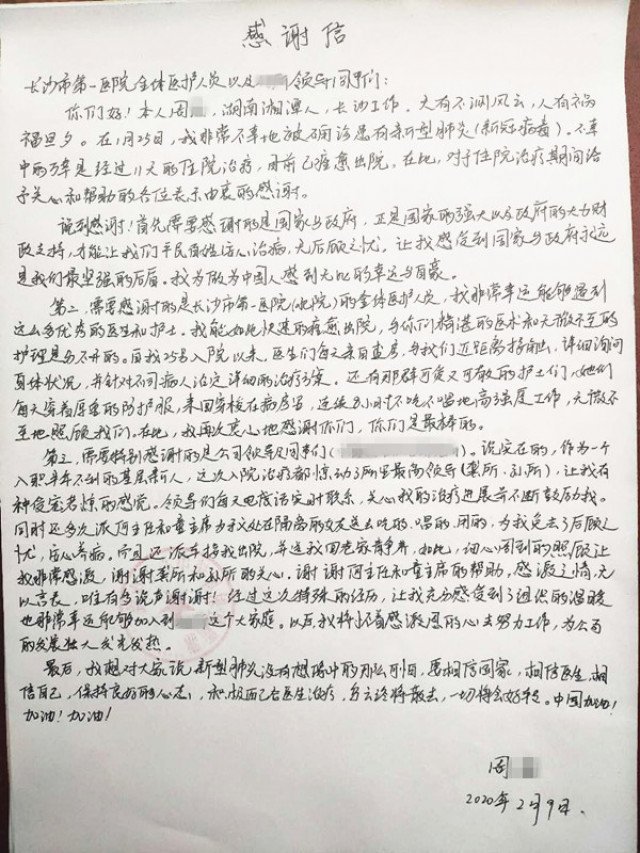 感谢信
长沙市第一医院全体医护人员以及领导同事们：
你们好！本人周，湖南湘潭人，长沙工作。天有不测风云，人有祸
福旦夕。在1月25日，我非常不幸地被确诊患有新型肺炎（新冠病毒）。不幸
中的万幸是经过11天的住院治疗，目前已痊愈出院。在此，对于住院治疗期间给
予关心和帮助的各位表示由衷的感谢。
说到感谢！首先需要感谢的是国家与政府，正是国家的强大以及政府的大力财
政支持，才能让我们平民百姓治病，无后顾之忧。让我感受到国家与政府永远
是我们最坚强的后盾。我为做为中国人感到无比的幸运与自豪。
第二，需要感谢的是长沙市第一医院（北院）的全体医护人员，我非常幸运能够遇到
这么多优秀的医生和护士。我能如此快速的痊愈出院，与你们精湛的医术和无微不至的
护理是分不开的。自我25号入院以来，医生们每天亲自查房，与我们近距离接触，详细询问
具体状况，并针对不同病人治定详细的治疗方案。还有那群可爱又可敬的护士们，她们
每天穿着厚重的防护服，来回穿梭在病房里，连续小时不吃不喝地高强度工作，无微不
至地照顾我们。在此，我再次衷心地感谢你们，你们是最棒的。
第三，需要特别感谢的是公司领导及同事们（）。说实在的，作为一个
入职半年不到的基层新人，这次入院治疗都惊动了所里最高领导（龚所、孙所），让我有
种受宠若惊的感觉。领导们每天电话实时联系，关心我的治疗进展并不断鼓励我。
同时还多次派何主任和童主席为我处在隔离的女友送去吃的、喝的、用的，为我免去了后顾之
忧，安心养病。今日还派车接我出院，并送我回老家静养，如此细心周到的照顾让
我非常感激，谢谢龚所和孙所的关心。谢谢何主任和童主席的帮助，感激之情无
以言表，唯有多说声谢谢！经过这次特殊的经历，让我充分感受到了组织的温暖
也非常幸运能够加入到这个大家庭。以后我将怀着感激感恩的心去努力工作，为公司
的发展壮大发光发热。
最后，我想对大家说，新型肺炎没有想象中的那么可怕，要相信国家，相信医生，相
信自己，保持良好的心态，积极配合医生治疗，终将散去，一切将会好转。中国加油！
加油！加油！
周
2020年2月9日。